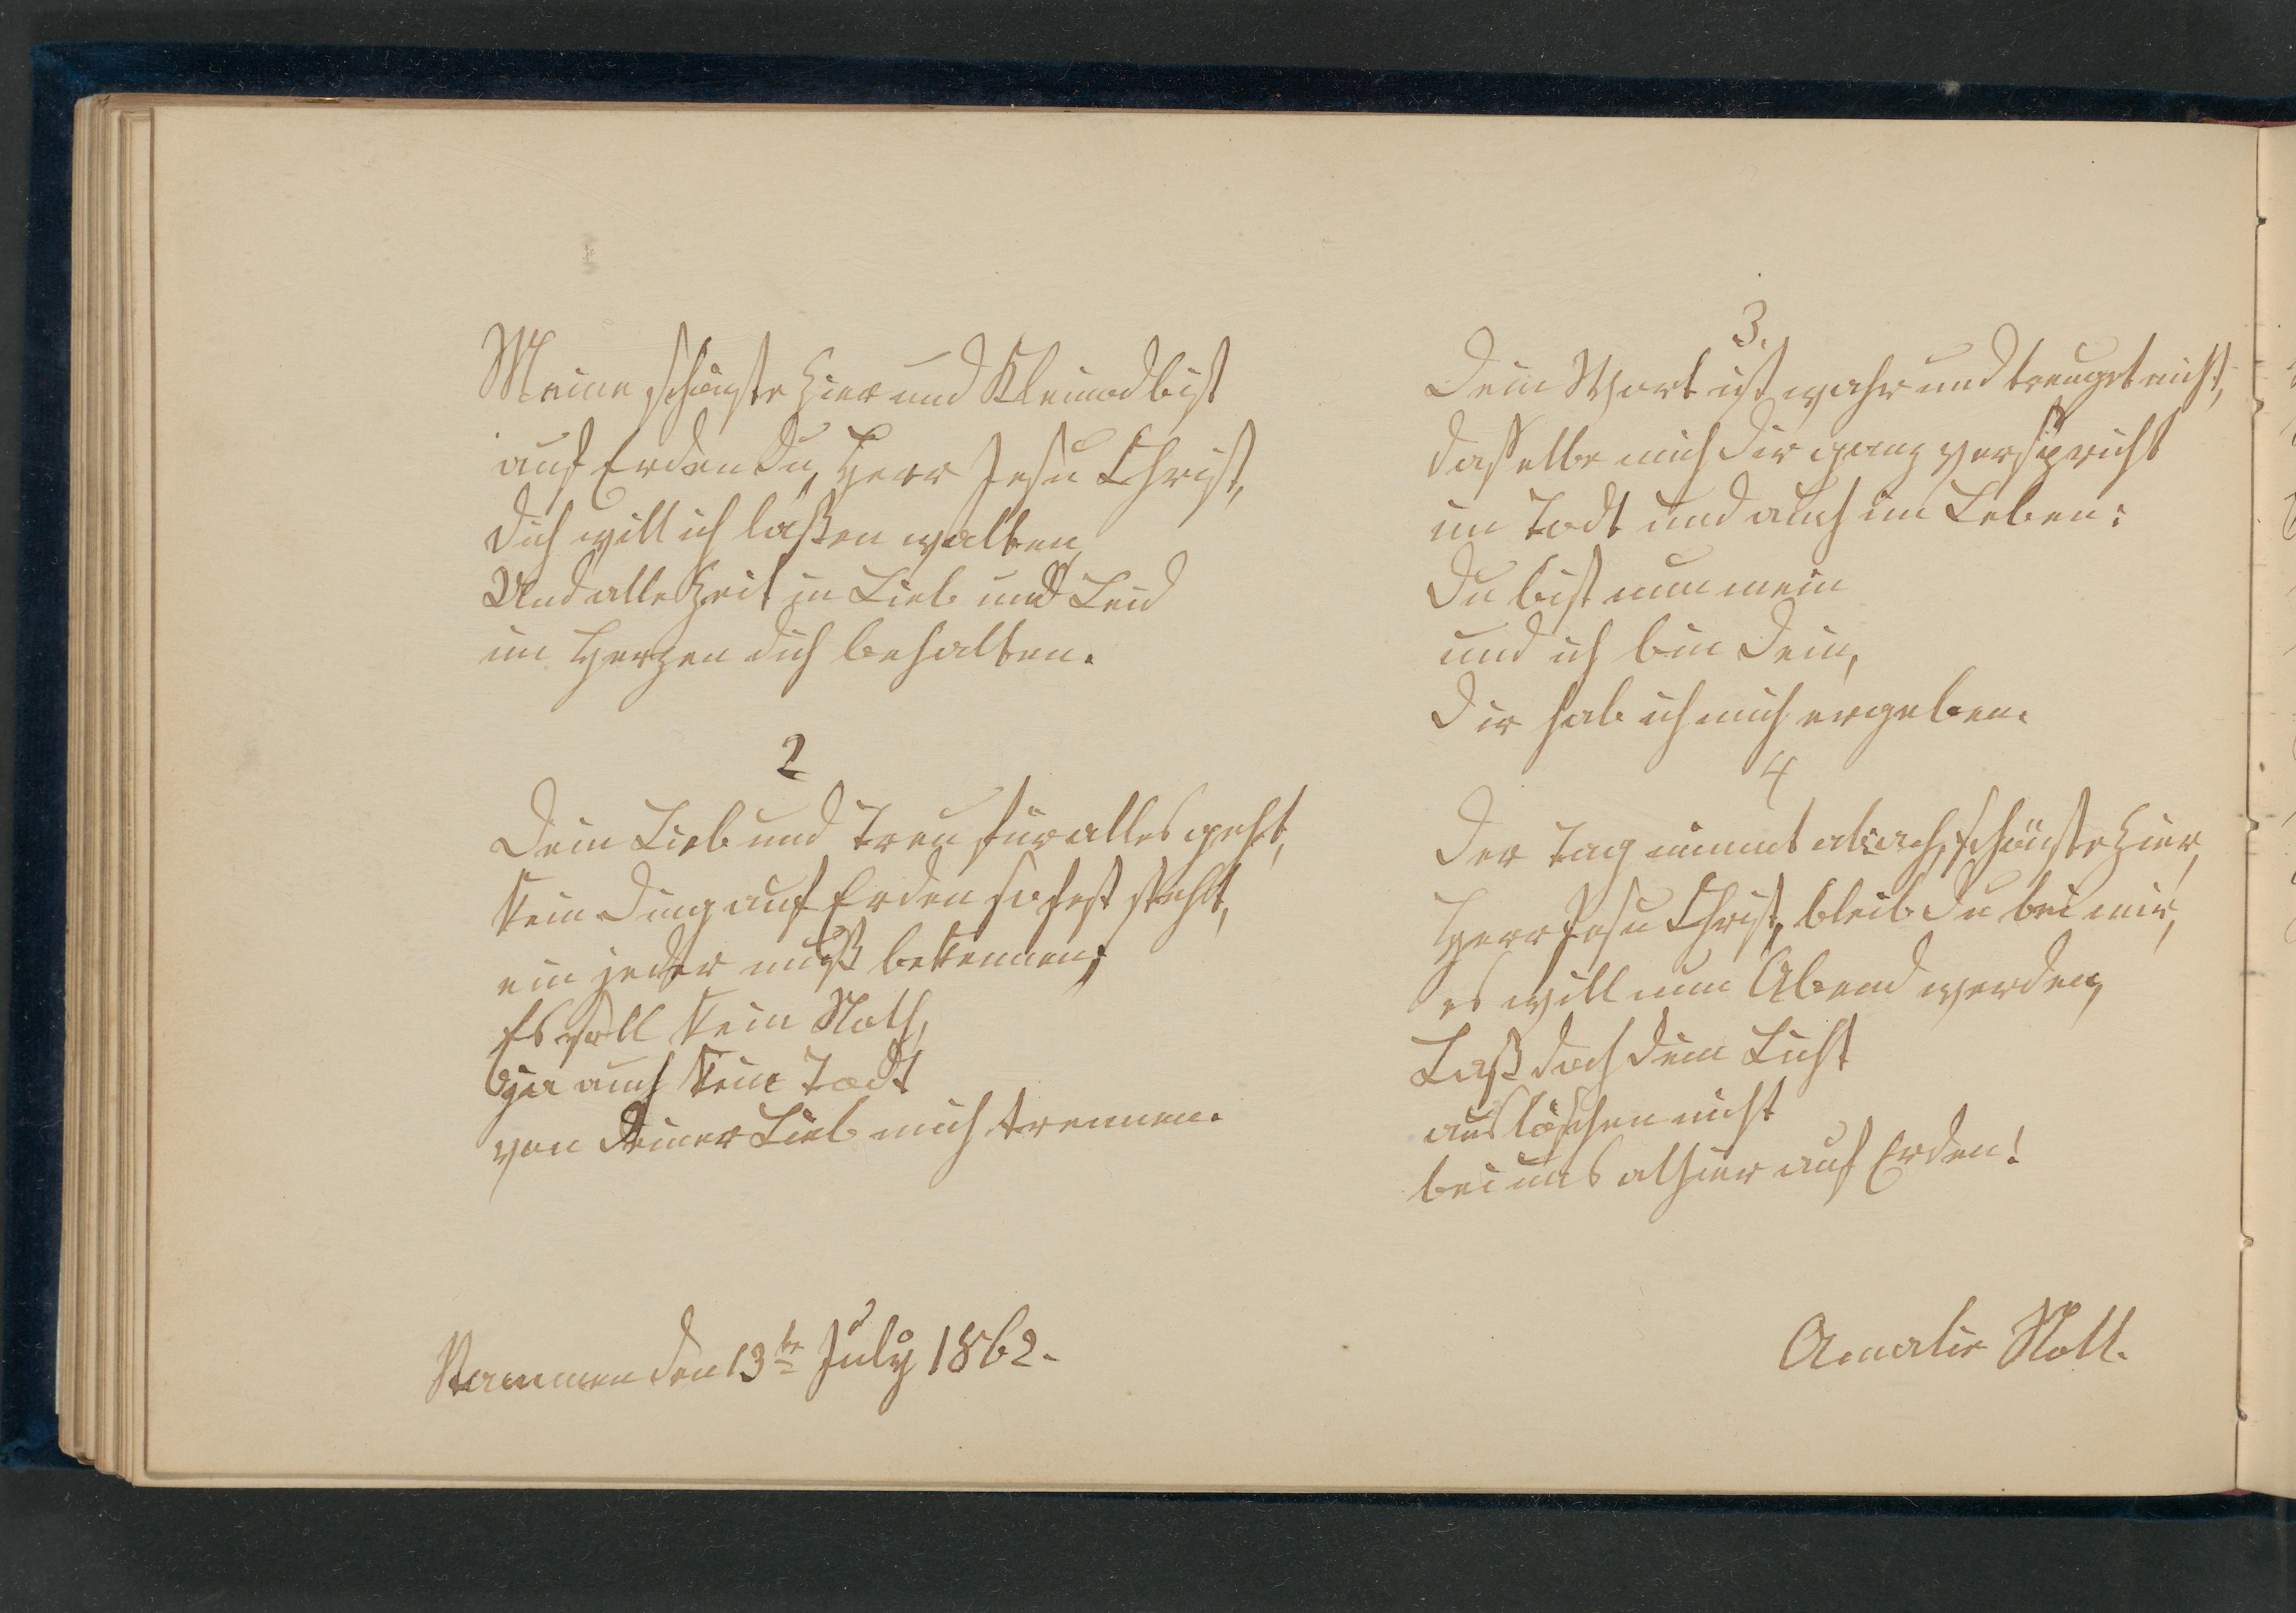 Meine schönste Zier und Kleinod bist
auf Erden Du, Herr Jesu Christ,
Dich will ich laßen walten,
Und alle Zeit in Lieb und Leid
im Herzen dich behalten.
2
Dein Lieb und Treu für alles geht,
Kein Ding auf Erden so fest steht,
ein jeder muß bekennen;
Es soll kein Noth,
ja auch kein Todt
von Deiner Lieb mich trennen.
3.
Dein Wort ist wahr und treuget nicht,
dasselbe mich Dir ganz verspricht
im Todt und auch im Leben:
Du bist nun mein
und ich bin Dein,
Dir hab ich mich ergeben.
4
Der Tag nimmt ab: ach, schönste Zier,
Herr Jesu Christ, bleib Du bei mir,
es will nun Abend werden,
Laß doch dein Licht
auslöschen nicht
bei uns alhier auf Erden!
den 13te July 1862.
Amalie Noll.